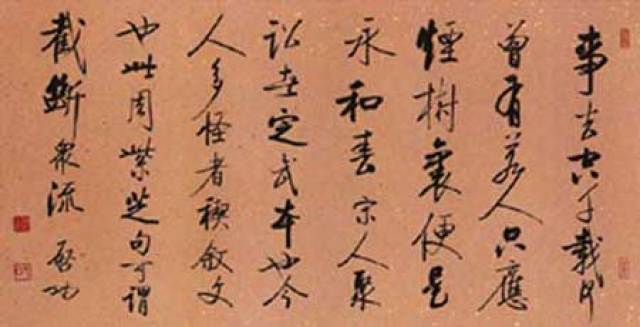 事去空千載
曾有若人只應
煙樹裏便是
永和春宋人聚
訟在定武本也今
人多怪者禊敘文
也此周紫芝句可謂
截斷衆流 啓功